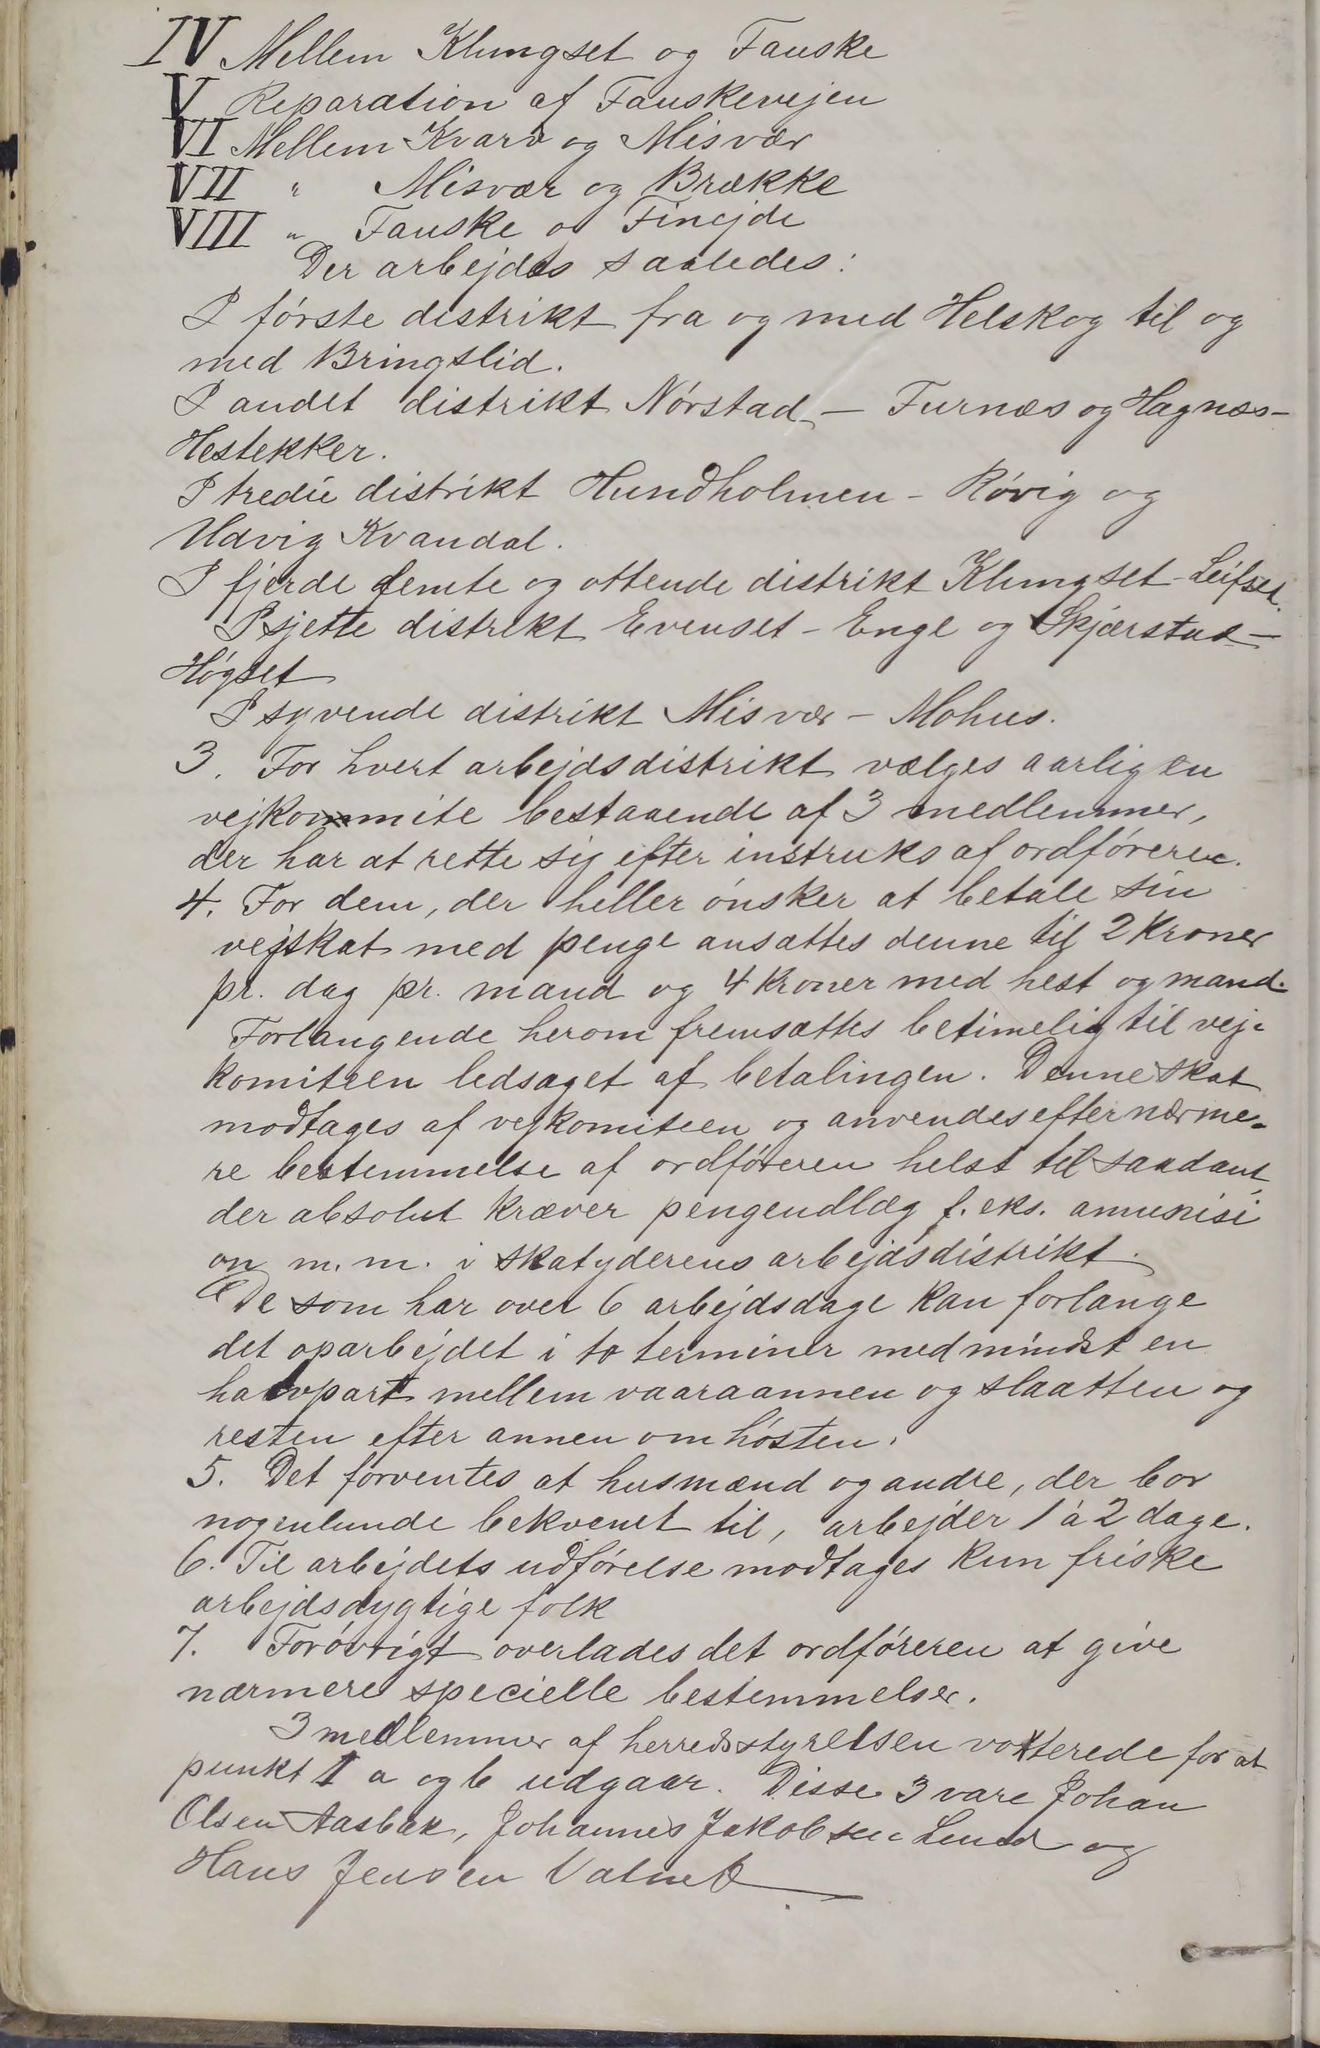 IV Mellem Klungset og Fauske
V Reparation af Fauskevejen
VI Mellem Kvarv og Misvær
VII " Misvær og Brække
VIII " Fauske o Finejde
Der arbejdes saaledes:
I første distrikt fra og med Helskog til og
med Bringslid.
I andet distrikt Nørstad – Furnæs og Hagnæs-
Hestekker.
I tredie distrikt Hundholmen – Røvig og
Udvig Kvandal.
I fjerde femte og ottende distrikt Klungset-Leifset.
I sjette distrikt Evenset – Enge og Skjærstad –
Høgset
I syvende distrikt Misvær – Mohus.
3. For hvert arbejdsdistrikt vælges aarlig en
vejkommite bestaaende af 3 medlemmer,
der har at rette sig efter instruks af ordføreren.
4. For dem, der heller ønsker at betale sin
vejskat med penge ansættes denne til 2 Kroner
pr. dag pr. mand og 4 Kroner med hest og mand.
Forlangende herom fremsættes betimelig til vej-
komiteen ledsaget af betalingen. Denne skat
modtages af vejkomiteen og anvendes efter nærme-
re bestemmelse af ordføreren helst til saadant,
der absolut kræver pengeudlæg f. eks. amunisi
on m. m. i skatyderens arbejdsdistrikt.
De som har over 6 arbejdsdage kan forlange
det oparbejdet i to terminer med mindst en
halvpart mellem vaaraannen og slaatten og
resten efter annen om høsten.
5. Det forventes at husmænd og andre, der bor
nogenlunde bekvemt til, arbejder 1 à 2 dage.
6. Til arbejdets udførelse modtages kun friske
arbejdsdygtige folk
7. Forøvrigt overlades det ordføreren at give
nærmere specielle bestemmelser.
3 medlemmer af herredsstyrelsen votterede for at
punkt 1 a og b udgaar. Disse 3 vare Johan
Olsen Aasbak, Johannes Jakobsen Lund og
Hans Jensen Valnes